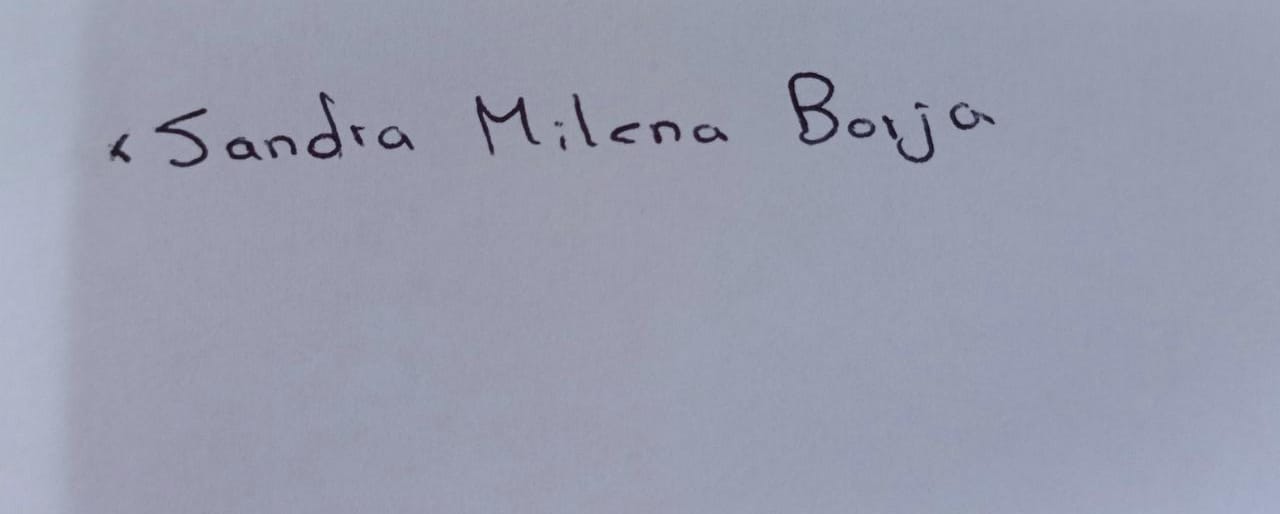 Sandra Milena Borja